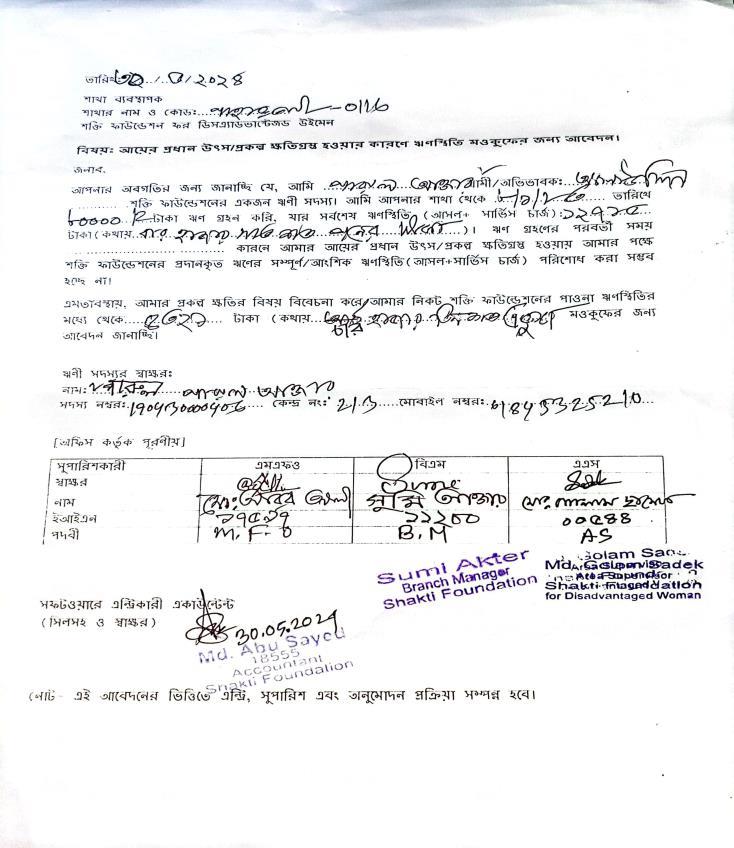 তারিখঃ ৩০/৫/২০২৪
শাখা ব্যবস্থাপক
শাখার নাম ও কোডঃ -0116
শক্তি ফাউন্ডেশন ফর ডিসএ্যাডভান্টেজড উইমেন
বিষয়ঃ আয়ের প্রধান উৎস/প্রকল্প ক্ষতিগ্রস্ত হওয়ার কারণে ঋণস্থিতি মওকুফের জন্য আবেদন।
জনাব,
আপনার অবগতির জন্য জানাচ্ছি যে, আমি আক্তার স্বামী/অভিভাবকঃ
শক্তি ফাউন্ডেশনের একজন ঋণী সদস্য। আমি আপনার শাখা থেকে তারিখে
৮০০০০ টাকা ঋণ গ্রহন করি, যার সর্বশেষ ঋণস্থিতি (আসল+ সার্ভিস চার্জ)ঃ ১২৭১৫
টাকা (কথায় বার হাজার সাত শত পনের )। ঋণ গ্রহণের পরবর্তী সময়
কারনে আমার আয়ের প্রধান উৎস/প্রকল্প ক্ষতিগ্রস্ত হওয়ায় আমার পক্ষে
শক্তি ফাউন্ডেশনের প্রদানকৃত ঋণের সম্পূর্ণ/আংশিক ঋণস্থিতি (আসল+সার্ভিস চার্জ) পরিশোধ করা সম্ভব
হচ্ছে না।
এমতাবস্থায়, আমার প্রকল্প ক্ষতির বিষয় বিবেচনা করে/আমার নিকট শক্তি ফাউন্ডেশনের পাওনা ঋণস্থিতির
মধ্যে থেকে টাকা (কথায় হাজার তিন শত একুশ মওকুফের জন্য
আবেদন জানাচ্ছি।
ঋণী সদস্যের স্বাক্ষরঃ
নামঃ আক্তার
সদস্য নম্বরঃ কেন্দ্র নংঃ 213 মোবাইল নম্বরঃ 01845325210
[অফিস কর্তৃক পূরণীয়]
সুপারিশকারী এমএফও বিএম এএস
স্বাক্ষর
নাম মোঃ আলী সুমি আক্তার মোঃ
ইআইএন ১৭৫৯৭ ১১২০০ ০০৫৪৪
পদবী M.F.O B.M AS
Sumi Akter
Branch Manager
Shakti Foundation
Shakti Foundation
for Disadvantaged Woman
সফটওয়ারে এন্ট্রিকারী একাউন্টেন্ট
(সিলসহ ও স্বাক্ষর)
30.05.2024
Md. Abu Sayed
18555
Accountant
Shakti Foundation
নোট - এই আবেদনের ভিত্তিতে এন্ট্রি, সুপারিশ এবং অনুমোদন প্রক্রিয়া সম্পন্ন হবে।